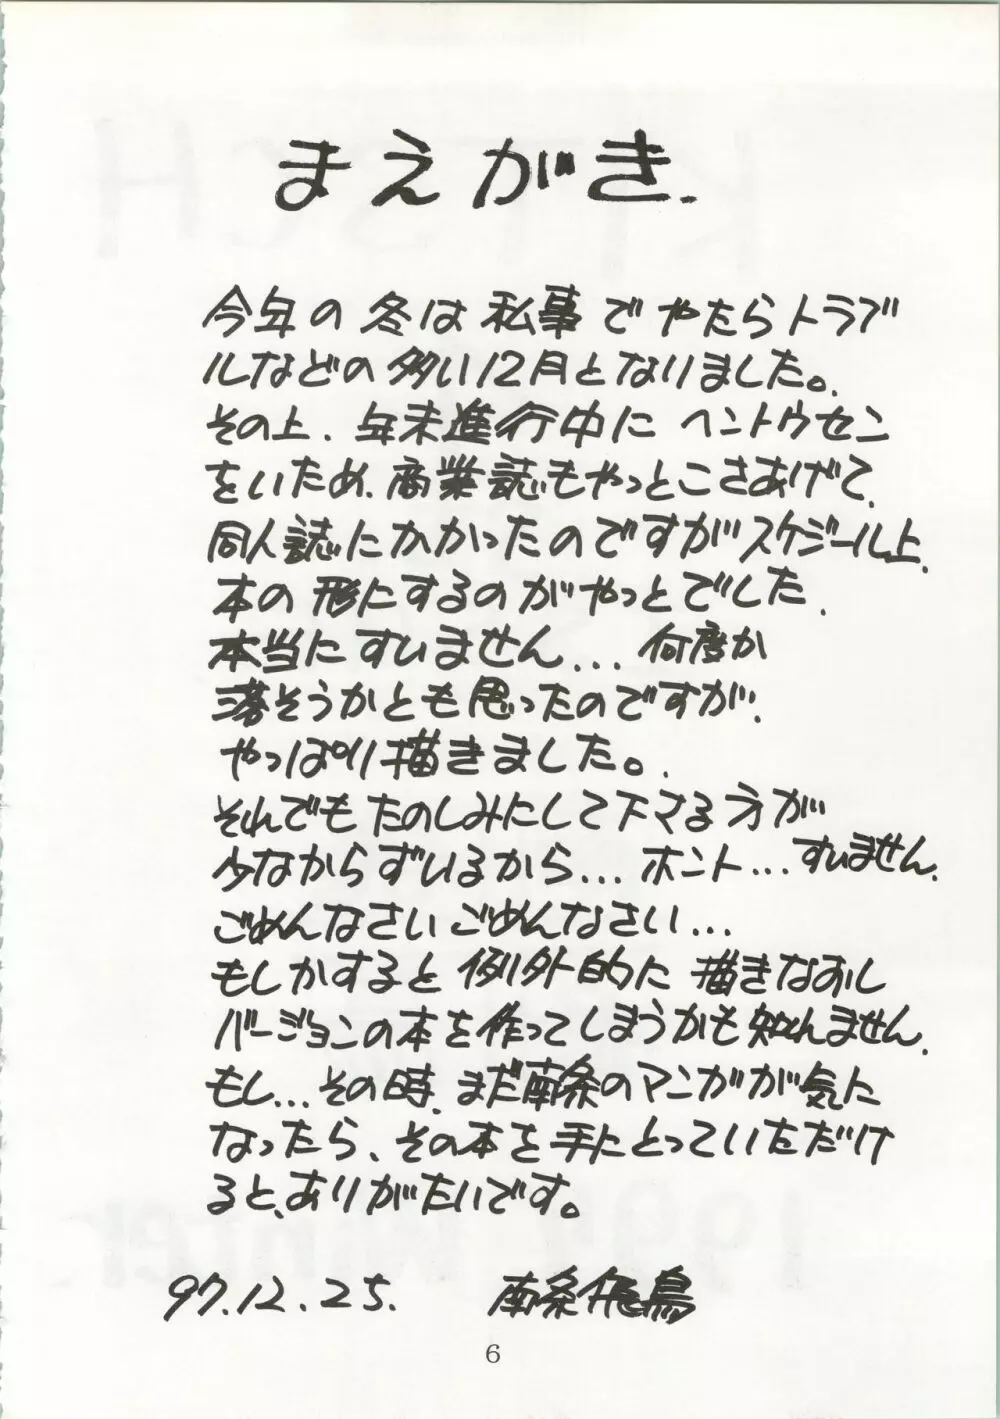 まえがき.
今年の冬は私事でやたらトラブ
ルなどの多い12月となりました。
その上、年末進行中にヘントウセン
をいため、商業誌もやっとこさあげて、
同人誌にかかったのですがスケジール上、
本の形にするのがやっとでした.
本当にすいません... 何度か
落そうかとも思ったのですが、
やっぱり描きました。.
それでもたのしみにして下さる方が
少なからずいるから... ホント... すいません.
ごめんなさいごめんなさい...
もしかすると例外的に描きなおし
バージョンの本を作ってしまうかも知れません.
もし... その時、まだ南条のマンガが気に
なったら、その本を手にとっていただけ
ると、ありがたいです。
97.12.25. 南条飛鳥
6
KITSCH
1997 Winter